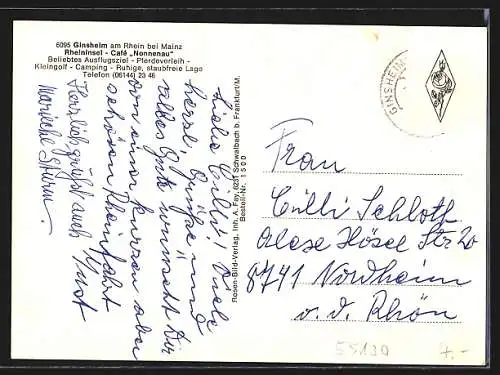 6095 Ginsheim am Rhein bei Mainz
Rheininsel - Café „Nonnenau"
Beliebtes Ausflugsziel - Pferdeverleih -
Kleingolf - Camping - Ruhige, staubfreie Lage
Telefon (06144) 23 46
Liebe Cilli! Viele
herzl. Grüße und
alles Gute wünscht Dir
von einer kurzen aber
schönen Rheinfahrt
Herzlich grüßt auch
Rosen-Bild-Verlag, Inh. A. Fay, 6231 Schwalbach b. Frankfurt/M.
Bestell-Nr. 1500
GINSHEIM
Frau
Cilli Schloth
Hösel Str 20
8741 Nordheim
v. d. Rhön
55130
4.-